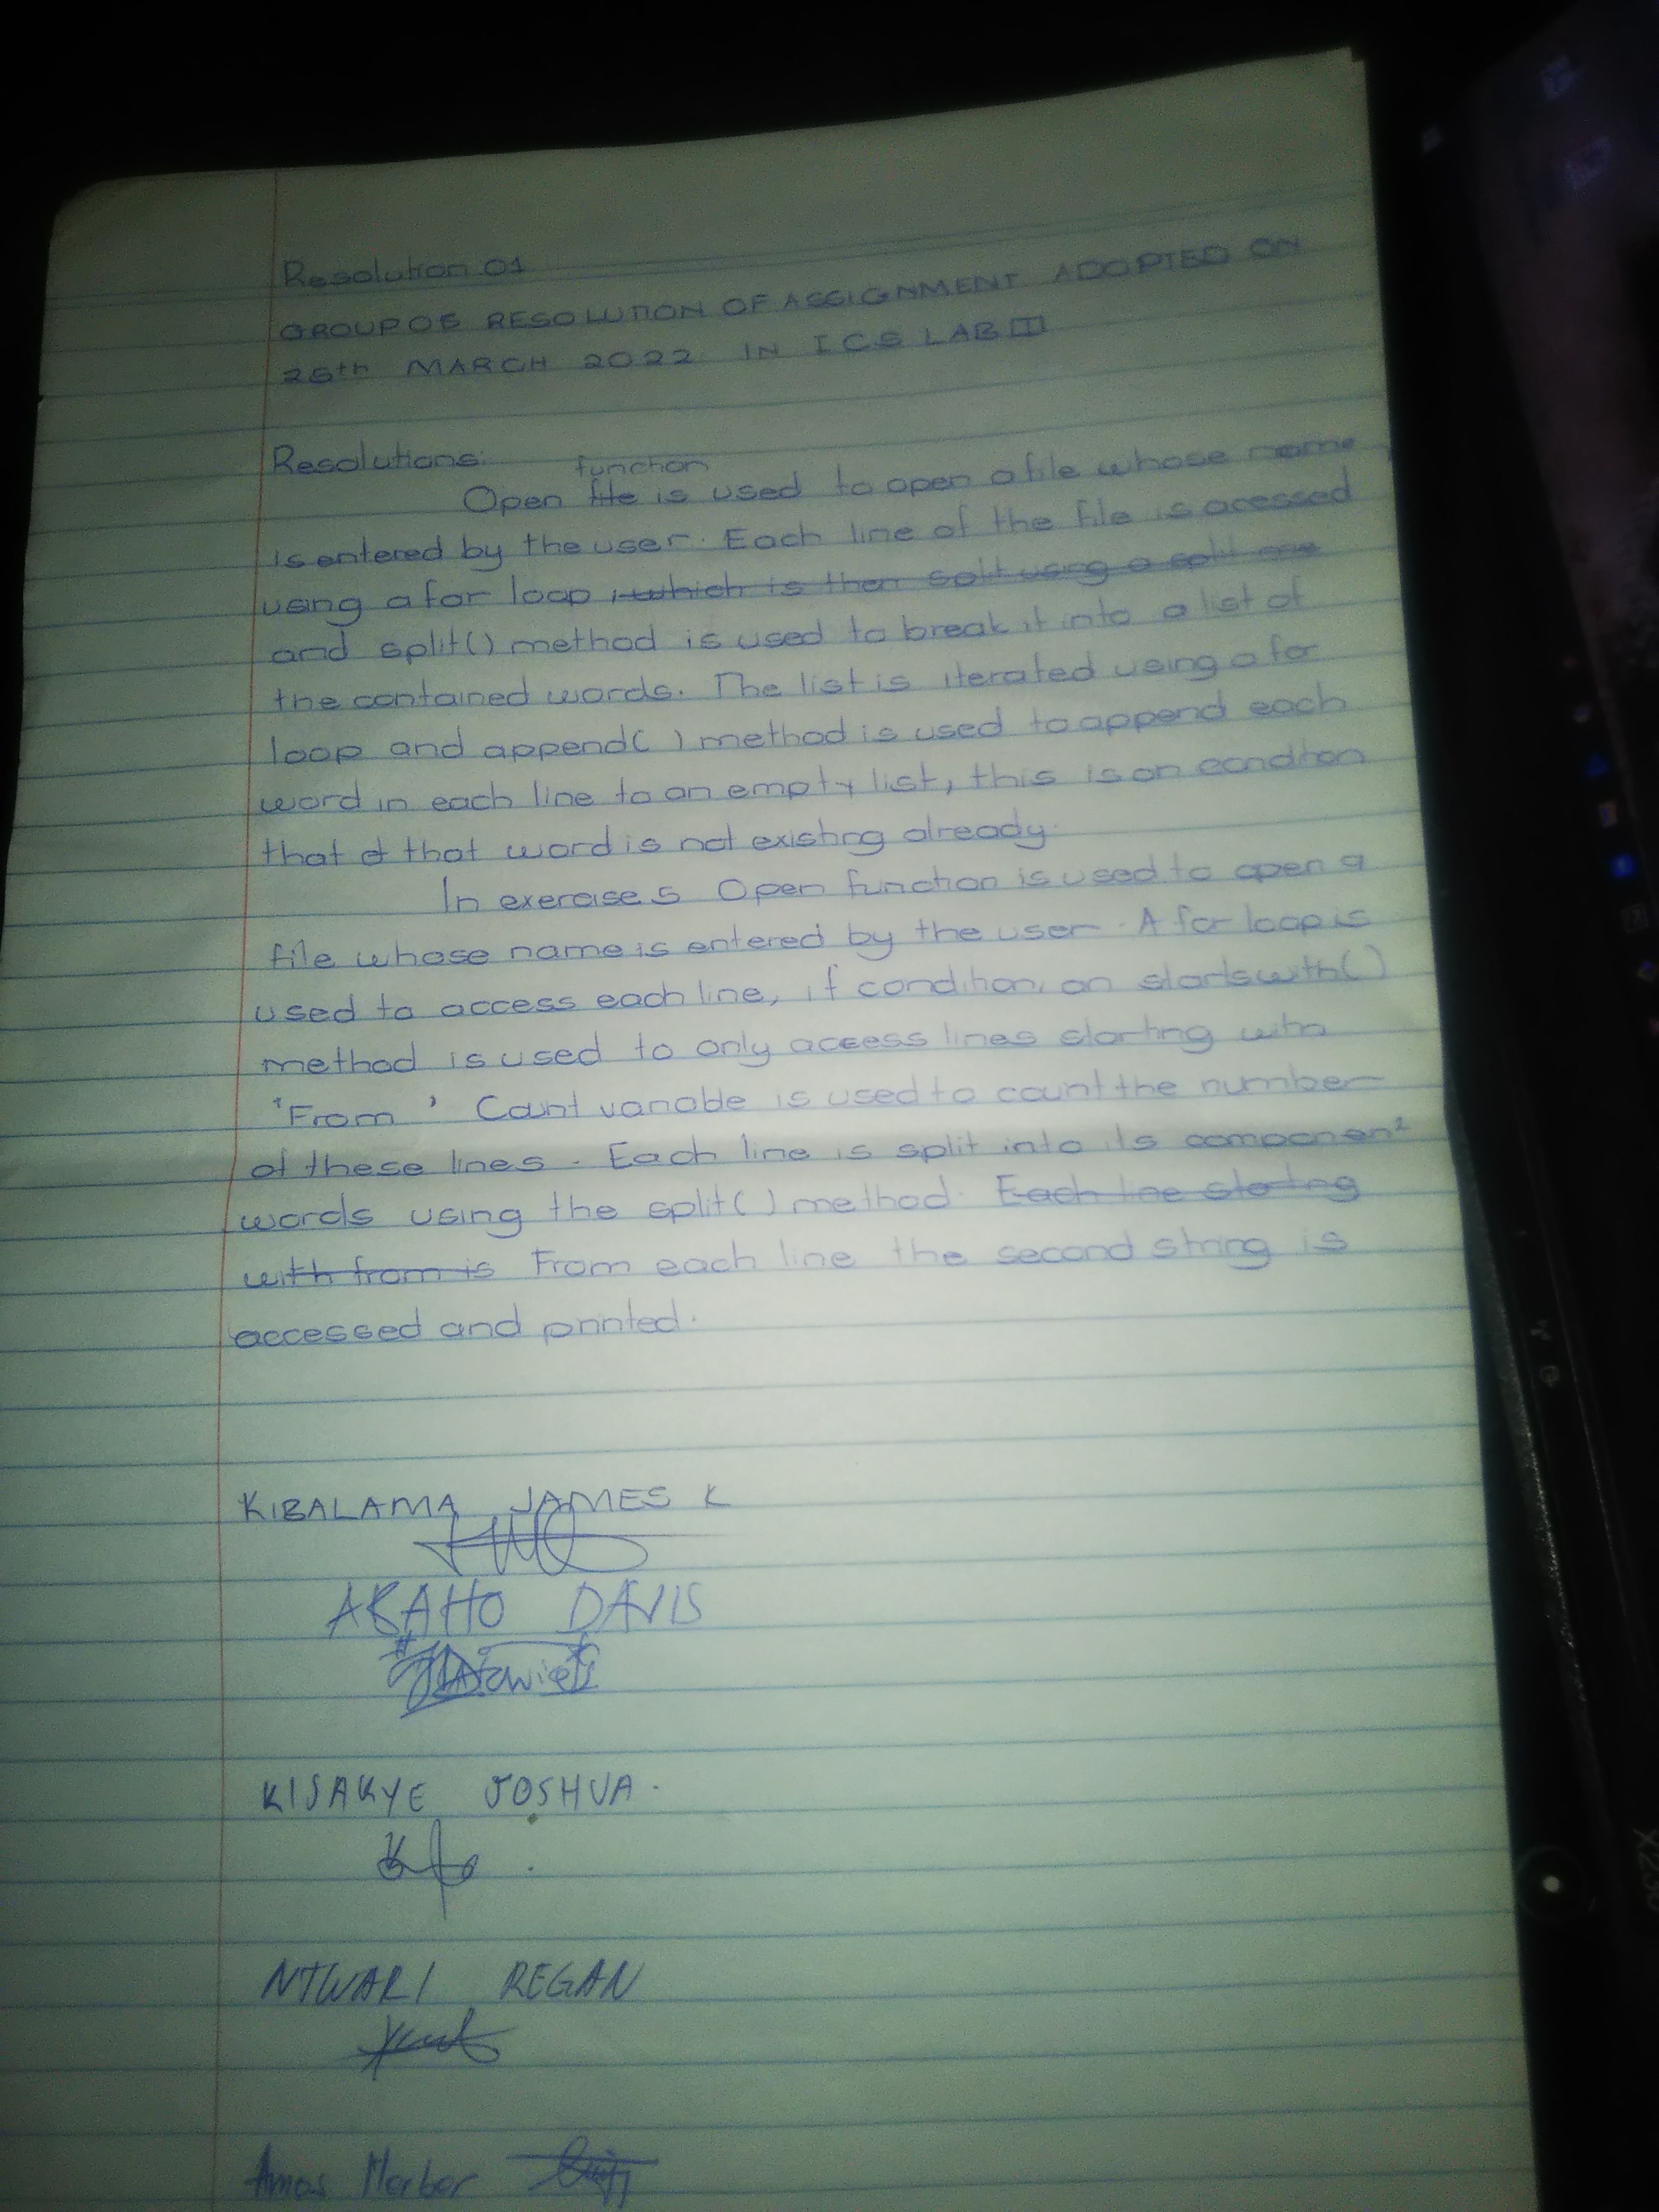 Resolution 01
GROUP 05 RESOLUTION OF ASSIGNMENT ADOPTED ON
25th MARCH 2022 IN ICS LAB III
Resolutions:
function
Open file is used to open a file whose name
is entered by the user. Each line of the file is acessed
using a for loop, which is then split using a split
and split() method is used to break it into a list of
the contained words. The list is iterated using a for
loop and append() method is used to append each
word in each line to an empty list, this is on condition
that that word is not existing already.
In exercise 5 Open function is used to open a
file whose name is entered by the user. A for loop is
used to access each line, if condition, on startswith()
method is used to only access lines starting with
'From ' Count variable is used to count the number
of these lines. Each line is split into its component
words using the split() method. Each line starting
with from is From each line the second string is
accessed and printed.
KIBALAMA JAMES K
AKAHO DAVIS
KISAKYE JOSHUA.
NTWARI REGAN
Amos